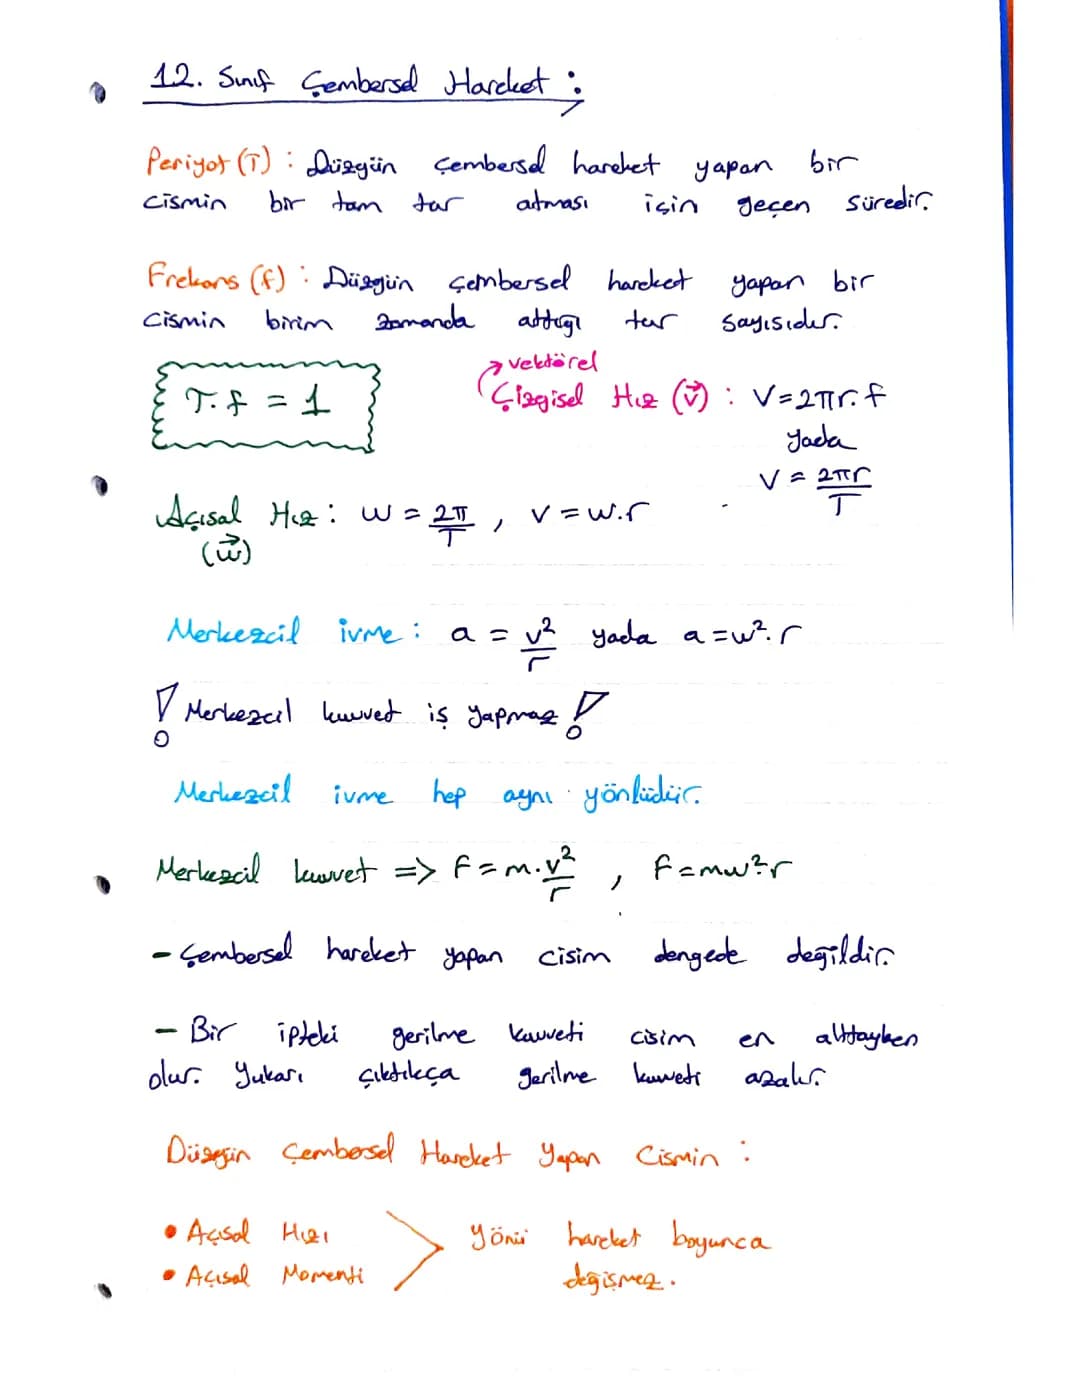 12. Sınıf Çembersel Hareket :
Periyot (T) : Düzgün çembersel hareket yapan bir
cismin bir tam tur atması için geçen süredir.
Frekans (f) : Düzgün çembersel hareket yapan bir
cismin birim zamanda attığı tur sayısıdır.
T.f = 1
vektörel
Çizgisel Hız (v⃗) : V=2πr.f
yada
V = 2πr/T
Açısal Hız : w = 2π/T , v = w.r
(w⃗)
Merkezcil ivme : a = v²/r yada a =w².r
! Merkezcil kuvvet iş yapmaz !
Merkezcil ivme hep aynı yönlüdür.
Merkezcil kuvvet => F = m.v²/r , F=mw²r
- Çembersel hareket yapan cisim dengede değildir.
- Bir ipteki gerilme kuvveti cisim en alttayken
olur. Yukarı çıktıkça gerilme kuvveti azalır.
Düzgün Çembersel Hareket Yapan Cismin :
• Açısal Hızı
• Açısal Momenti
> Yönü hareket boyunca
değişmez.